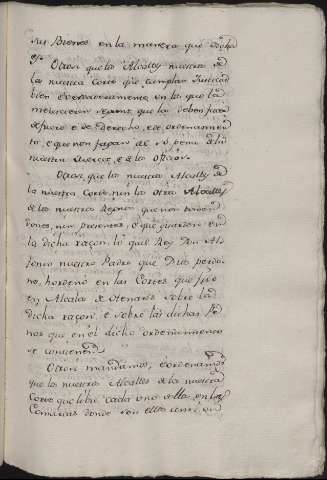 sus Bienes en la manera que dicha
es.
Otrosi que los Alcalles nuestros de
la nuestra Corte que cumplan Justicia
bien e verdaderamente en lo que la
menester segunt que lo deben facer
de fuero e de derecho, e de ordenamien
to, e que non fagan de so pena de la
nuestra merced, e de los oficios.
Otrosi que los nuestros Alcalles de
la nuestra Corte, nin los otros Alcalles
de los nuestros Regnos que non tomen
dones, nin presentes, e que guarden en
la dicha raçon lo que Rey Don Al
fonso nuestro Padre que Dios perdo
ne, hordenó en las Cortes que fizo
en Alcala de Henares sobre la
dicha raçon e sobre las dichas Pe
nas que en el dicho ordenamiento
se contienen.
Otrosi mandamos, e ordenamos
que los nuestros Alcalles de la nuestra
Corte que libre cada uno de ellos en las
Comarcas donde son ellos